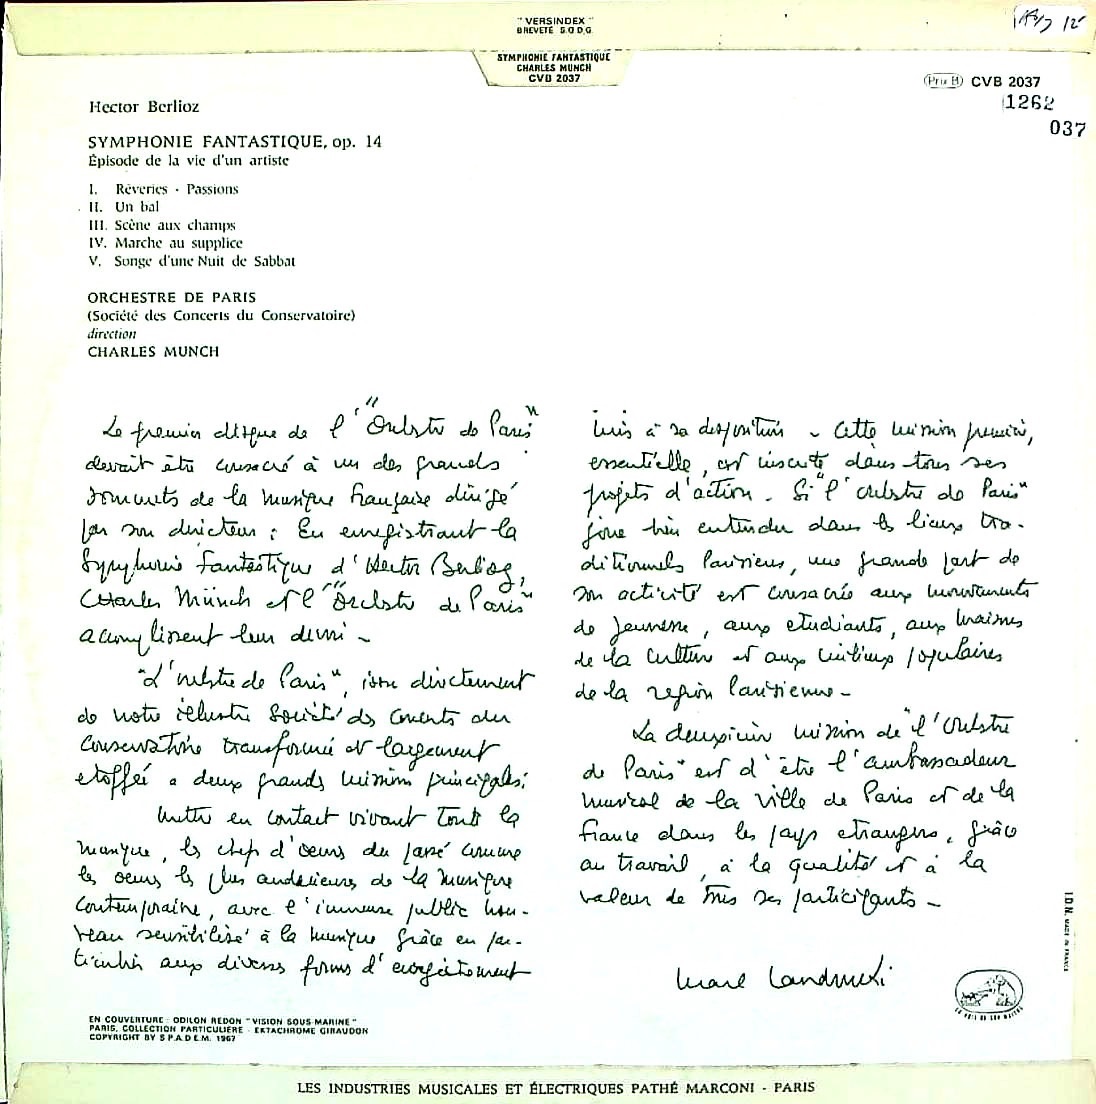 " VERSINDEX "
BREVETÉ S.G.D.G.
SYMPHONIE FANTASTIQUE
CHARLES MUNCH
CVB 2037
Prix B CVB 2037
1262
037
Hector Berlioz
SYMPHONIE FANTASTIQUE, op. 14
Épisode de la vie d'un artiste
I. Rêveries - Passions
II. Un bal
III. Scène aux champs
IV. Marche au supplice
V. Songe d'une Nuit de Sabbat
ORCHESTRE DE PARIS
(Société des Concerts du Conservatoire)
direction
CHARLES MUNCH
Le premier disque de l'"Orchestre de Paris"
devait être consacré à un des grands
sommets de la musique française dirigé
par son directeur : En enregistrant la
Symphonie Fantastique d'Hector Berlioz,
Charles Münch et l'"Orchestre de Paris"
accomplissent leur devoir -
"L'orchestre de Paris", issu directement
de notre illustre Société des Concerts du
Conservatoire transformé et largement
étoffé a deux grandes missions principales :
Mettre en contact vivant toute la
musique, les chefs d'oeuvres du passé comme
les oeuvres les plus audacieuses de la musique
contemporaine, avec l'immense public nou-
veau sensibilisé à la musique grâce en par-
ticulier aux diverses formes d'enregistrement
mis à sa disposition - Cette mission première,
essentielle, est inscrite dans tous ses
projets d'action - Si "l'orchestre de Paris"
joue bien entendu dans les lieux tra-
ditionnels Parisiens, une grande part de
son activité est consacrée aux mouvements
de jeunesse, aux étudiants, aux maisons
de la culture et aux milieux populaires
de la région Parisienne -
La deuxième mission de "l'Orchestre
de Paris" est d'être l'ambassadeur
musical de la ville de Paris et de la
France dans les pays étrangers, grâce
au travail, à la qualité et à la
valeur de tous ses participants -
Marcel Landowski
EN COUVERTURE : ODILON REDON "VISION SOUS-MARINE"
PARIS, COLLECTION PARTICULIÈRE - EKTACHROME GIRAUDON
COPYRIGHT BY S.P.A.D.E.M. 1967
LA VOIX DE SON MAITRE
I.D.N. MADE IN FRANCE
LES INDUSTRIES MUSICALES ET ÉLECTRIQUES PATHÉ MARCONI - PARIS